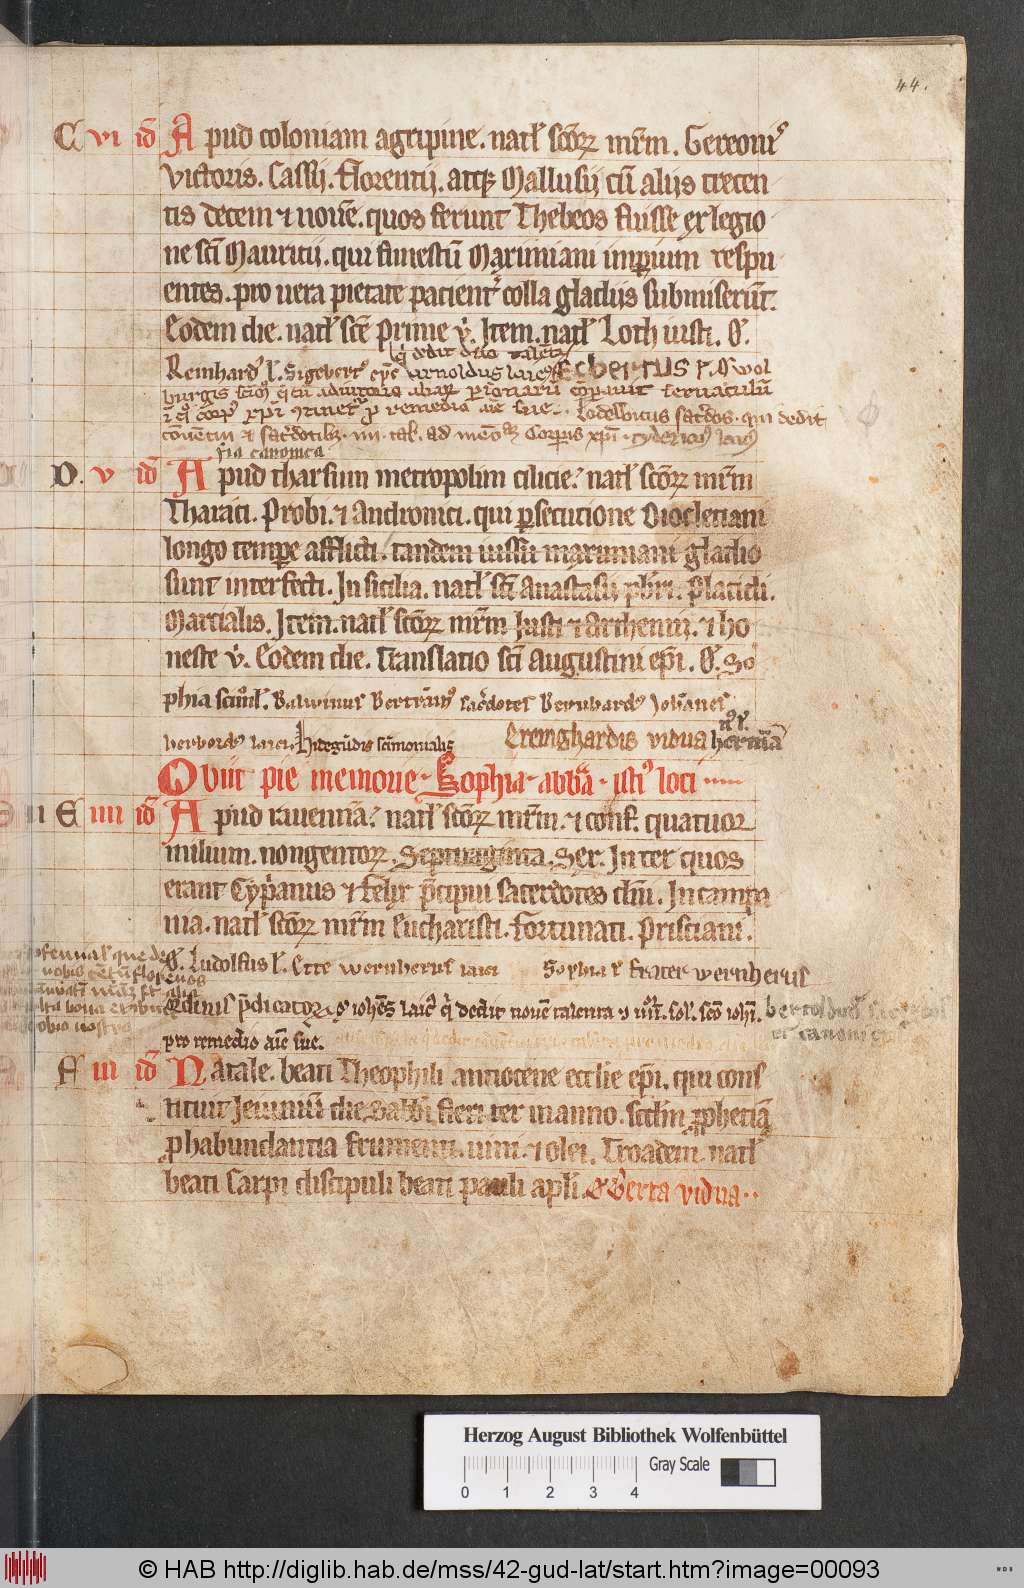 44.
C vi id A pud coloniam agripine. natł scōꝝ mr̄m. Gereoniꝰ
victoris. Cassij. florentij. atqꝫ Mallusij cū alijs trecen
tis decem ⁊ nouē. quos ferunt Thebeos fuisse ex legio
ne scī Mauritij. qui funestū Maximiani imꝑium respu
entes. pro uera pietate pacientꝰ colla gladiis submiserūt.
Eodem die. natł scē Prime v̓. Item. natł Loth iusti. O.
q̓ dedit dīo talētū
Reinhardꝰ ł. Sigebertꝰ ep̄c Arnoldus laicꝰ Ecbertus ł. O wol
burgis
pro remedio aīe sue. Lodewicus sac̓dos. qui dedit
cōuentui ⁊ sac̓dotibꝫ. iiii. tal. ad Corporis xp̄ī.
ſia canonica
D. v id A pud tharsum metropolim cilicie. natł scōꝝ mr̄m
Tharaci. Probi. ⁊ Andronici. qui ꝑsecutione Diocletiani
longo temꝑe afflicti. tandem iussu maximiani gladio
sunt interfecti. In sicilia. natł scī Anastasij pb̄ri. Placidi.
Marcialis. Item. natł scōꝝ mr̄m Iusti ⁊ Arthemij. ⁊ ho
neste v̓. Eodem die. Translatio scī Augustini ep̄i. O. So
phia Balwinus Bertrāmꝰ sac̓dotes Bernhardꝰ Iohānes
herbordꝰ laici. Hildegūdis scīmonialis Ermghardis vidua hermā
Obiit pie memorie. Sophia. abb̄a. istiꝰ loci
E iiii id A pud rauennā. natł scōꝝ mr̄m. ⁊ conf. quatuor
milium. nongentoꝝ. Septuaginta. Sex. Inter quos
erant Cyp̓anus ⁊ felix p̄cipui sacerdotes chr̄i. In campa
nia. natł scōꝝ mr̄m Eucharisti. Fortunati. Prisciani.
O. Ludolfus ł. Ette wernherus laici Sophia ł frater wernherus
p̄dicatoꝝ. O iohēs laicꝰ q̓ dedit nouē talenta
pro remedio aīe sue.
F iii id N atale. beati Theophili antiocene ecclīe ep̄i. qui cons
tituit Ieiuniū die Sabbī fieri ter in anno. scd̄m ꝓphetiā
ꝓ habundantia frumenti. uini. ⁊ olei. Troadem. natł
beati Carpi discipuli beati pauli apłi. O Berta vidua..
Herzog August Bibliothek Wolfenbüttel
Gray Scale
0 1 2 3 4
© HAB http://diglib.hab.de/mss/42-gud-lat/start.htm?image=00093